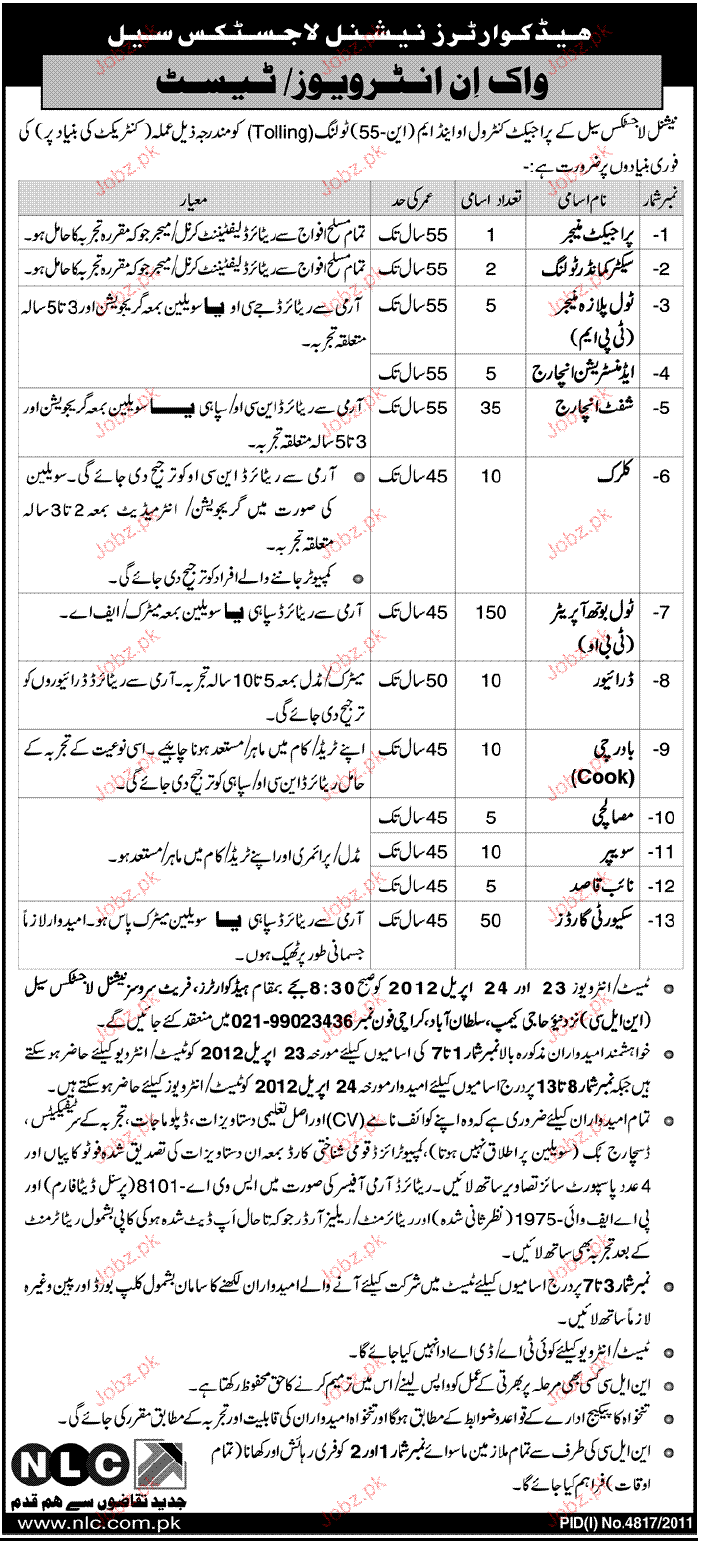 ہیڈکوارٹرز نیشنل لاجسٹکس سیل
واک اِن انٹرویوز/ ٹیسٹ
نیشنل لاجسٹکس سیل کے پراجیکٹ کنٹرول او اینڈ ایم (این-55) ٹولنگ (Tolling) کو مندرجہ ذیل عملہ (کنٹریکٹ کی بنیاد پر) کی
فوری بنیادوں پر ضرورت ہے:-
نمبر شمار نام اسامی تعداد اسامی عمر کی حد معیار
1- پراجیکٹ منیجر 1 55 سال تک تمام مسلح افواج سے ریٹائرڈ لیفٹیننٹ کرنل/ میجر جو کہ مقررہ تجربہ کا حامل ہو۔
2- سیکٹر کمانڈر ٹولنگ 2 55 سال تک تمام مسلح افواج سے ریٹائرڈ لیفٹیننٹ کرنل/ میجر جو کہ مقررہ تجربہ کا حامل ہو۔
3- ٹول پلازہ منیجر 5 55 سال تک آرمی سے ریٹائرڈ جے سی او یا سویلین بمعہ گریجویشن اور 3 تا 5 سالہ
(ٹی پی ایم) متعلقہ تجربہ۔
4- ایڈمنسٹریشن انچارج 5 55 سال تک
5- شفٹ انچارج 35 55 سال تک آرمی سے ریٹائرڈ این سی او/ سپاہی یا سویلین بمعہ گریجویشن اور
3 تا 5 سالہ متعلقہ تجربہ۔
6- کلرک 10 45 سال تک آرمی سے ریٹائرڈ این سی او کو ترجیح دی جائے گی۔ سویلین
کی صورت میں گریجویشن/ انٹرمیڈیٹ بمعہ 2 تا 3 سالہ
متعلقہ تجربہ۔
کمپیوٹر جاننے والے افراد کو ترجیح دی جائے گی۔
7- ٹول بوتھ آپریٹر 150 45 سال تک آرمی سے ریٹائرڈ سپاہی یا سویلین بمعہ میٹرک/ ایف اے۔
(ٹی بی او)
8- ڈرائیور 10 50 سال تک میٹرک/ مڈل بمعہ 5 تا 10 سالہ تجربہ۔ آرمی سے ریٹائرڈ ڈرائیوروں کو
ترجیح دی جائے گی۔
9- باورچی 10 45 سال تک اپنے ٹریڈ/ کام میں ماہر/ مستعد ہونا چاہیے۔ اسی نوعیت کے تجربہ کے
(Cook) حامل ریٹائرڈ این سی او/ سپاہی کو ترجیح دی جائے گی۔
10- مصالچی 5 45 سال تک
11- سویپر 10 45 سال تک مڈل/ پرائمری اور اپنے ٹریڈ/ کام میں ماہر/ مستعد ہو۔
12- نائب قاصد 5 45 سال تک
13- سکیورٹی گارڈز 50 45 سال تک آرمی سے ریٹائرڈ سپاہی یا سویلین میٹرک پاس ہو۔ امیدوار لازماً
جسمانی طور پر ٹھیک ہوں۔
ٹیسٹ/ انٹرویوز 23 اور 24 اپریل 2012 کو صبح 8:30 بجے بمقام ہیڈکوارٹرز، فریٹ سروسز نیشنل لاجسٹکس سیل
(این ایل سی) نزد نیو حاجی کیمپ، سلطان آباد، کراچی فون نمبر 021-99023436 میں منعقد کئے جائیں گے۔
خواہشمند امیدواران مذکورہ بالا نمبر شمار 1 تا 7 کی اسامیوں کیلئے مورخہ 23 اپریل 2012 کو ٹیسٹ/ انٹرویو کیلئے حاضر ہو سکتے
ہیں جبکہ نمبر شمار 8 تا 13 پر درج اسامیوں کیلئے امیدوار مورخہ 24 اپریل 2012 کو ٹیسٹ/ انٹرویوز کیلئے حاضر ہو سکتے ہیں۔
تمام امیدواران کیلئے ضروری ہے کہ وہ اپنے کوائف نامے (CV) اور اصل تعلیمی دستاویزات، ڈپلوماجات، تجربہ کے سرٹیفکیٹس،
ڈسچارج بک (سویلین پر اطلاق نہیں ہوتا)، کمپیوٹرائزڈ قومی شناختی کارڈ بمعہ ان دستاویزات کی تصدیق شدہ فوٹو کاپیاں اور
4 عدد پاسپورٹ سائز تصاویر ساتھ لائیں۔ ریٹائرڈ آرمی آفیسر کی صورت میں ایس وی اے-8101 (پرسنل ڈیٹا فارم) اور
پی اے ایف وائی-1975 (نظرثانی شدہ) اور ریٹائرمنٹ/ ریلیز آرڈر جو کہ تا حال اَپ ڈیٹ شدہ ہو کی کاپی بشمول ریٹائرمنٹ
کے بعد تجربہ بھی ساتھ لائیں۔
نمبر شمار 3 تا 7 پر درج اسامیوں کیلئے ٹیسٹ میں شرکت کیلئے آنے والے امیدواران لکھنے کا سامان بشمول کلپ بورڈ اور پین وغیرہ
لازماً ساتھ لائیں۔
ٹیسٹ/ انٹرویو کیلئے کوئی ٹی اے/ ڈی اے ادا نہیں کیا جائے گا۔
این ایل سی کسی بھی مرحلہ پر بھرتی کے عمل کو واپس لینے/ اس میں ترمیم کرنے کا حق محفوظ رکھتا ہے۔
تنخواہ کا پیکیج ادارے کے قواعد و ضوابط کے مطابق ہوگا اور تنخواہ امیدواران کی قابلیت اور تجربہ کے مطابق مقرر کی جائے گی۔
این ایل سی کی طرف سے تمام ملازمین ماسوائے نمبر شمار 1 اور 2 کو فری رہائش اور کھانا (تمام
اوقات) فراہم کیا جائے گا۔
NLC
جدید تقاضوں سے ہم قدم
www.nlc.com.pk
PID(I) No.4817/2011